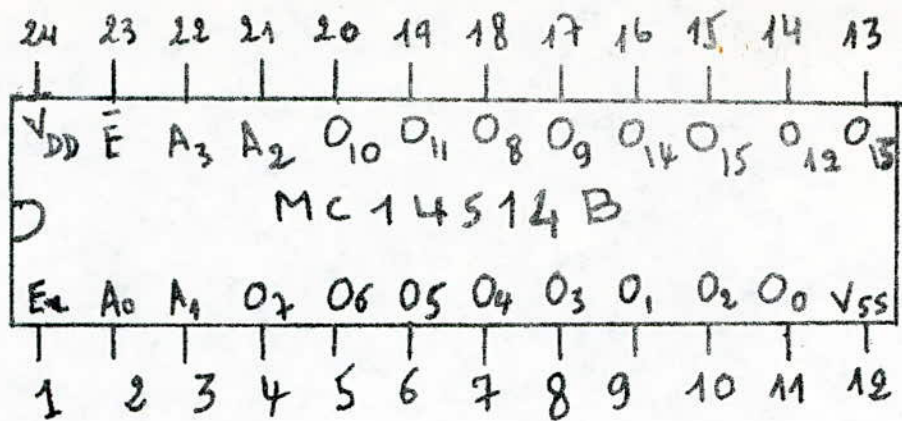 24 23 22 21 20 19 18 17 16 15 14 13
VDD E̅ A3 A2 O10 O11 O8 O9 O14 O15 O12 O13
MC14514B
A0 A1 O7 O6 O5 O4 O3 O1 O2 O0 VSS
1 2 3 4 5 6 7 8 9 10 11 12